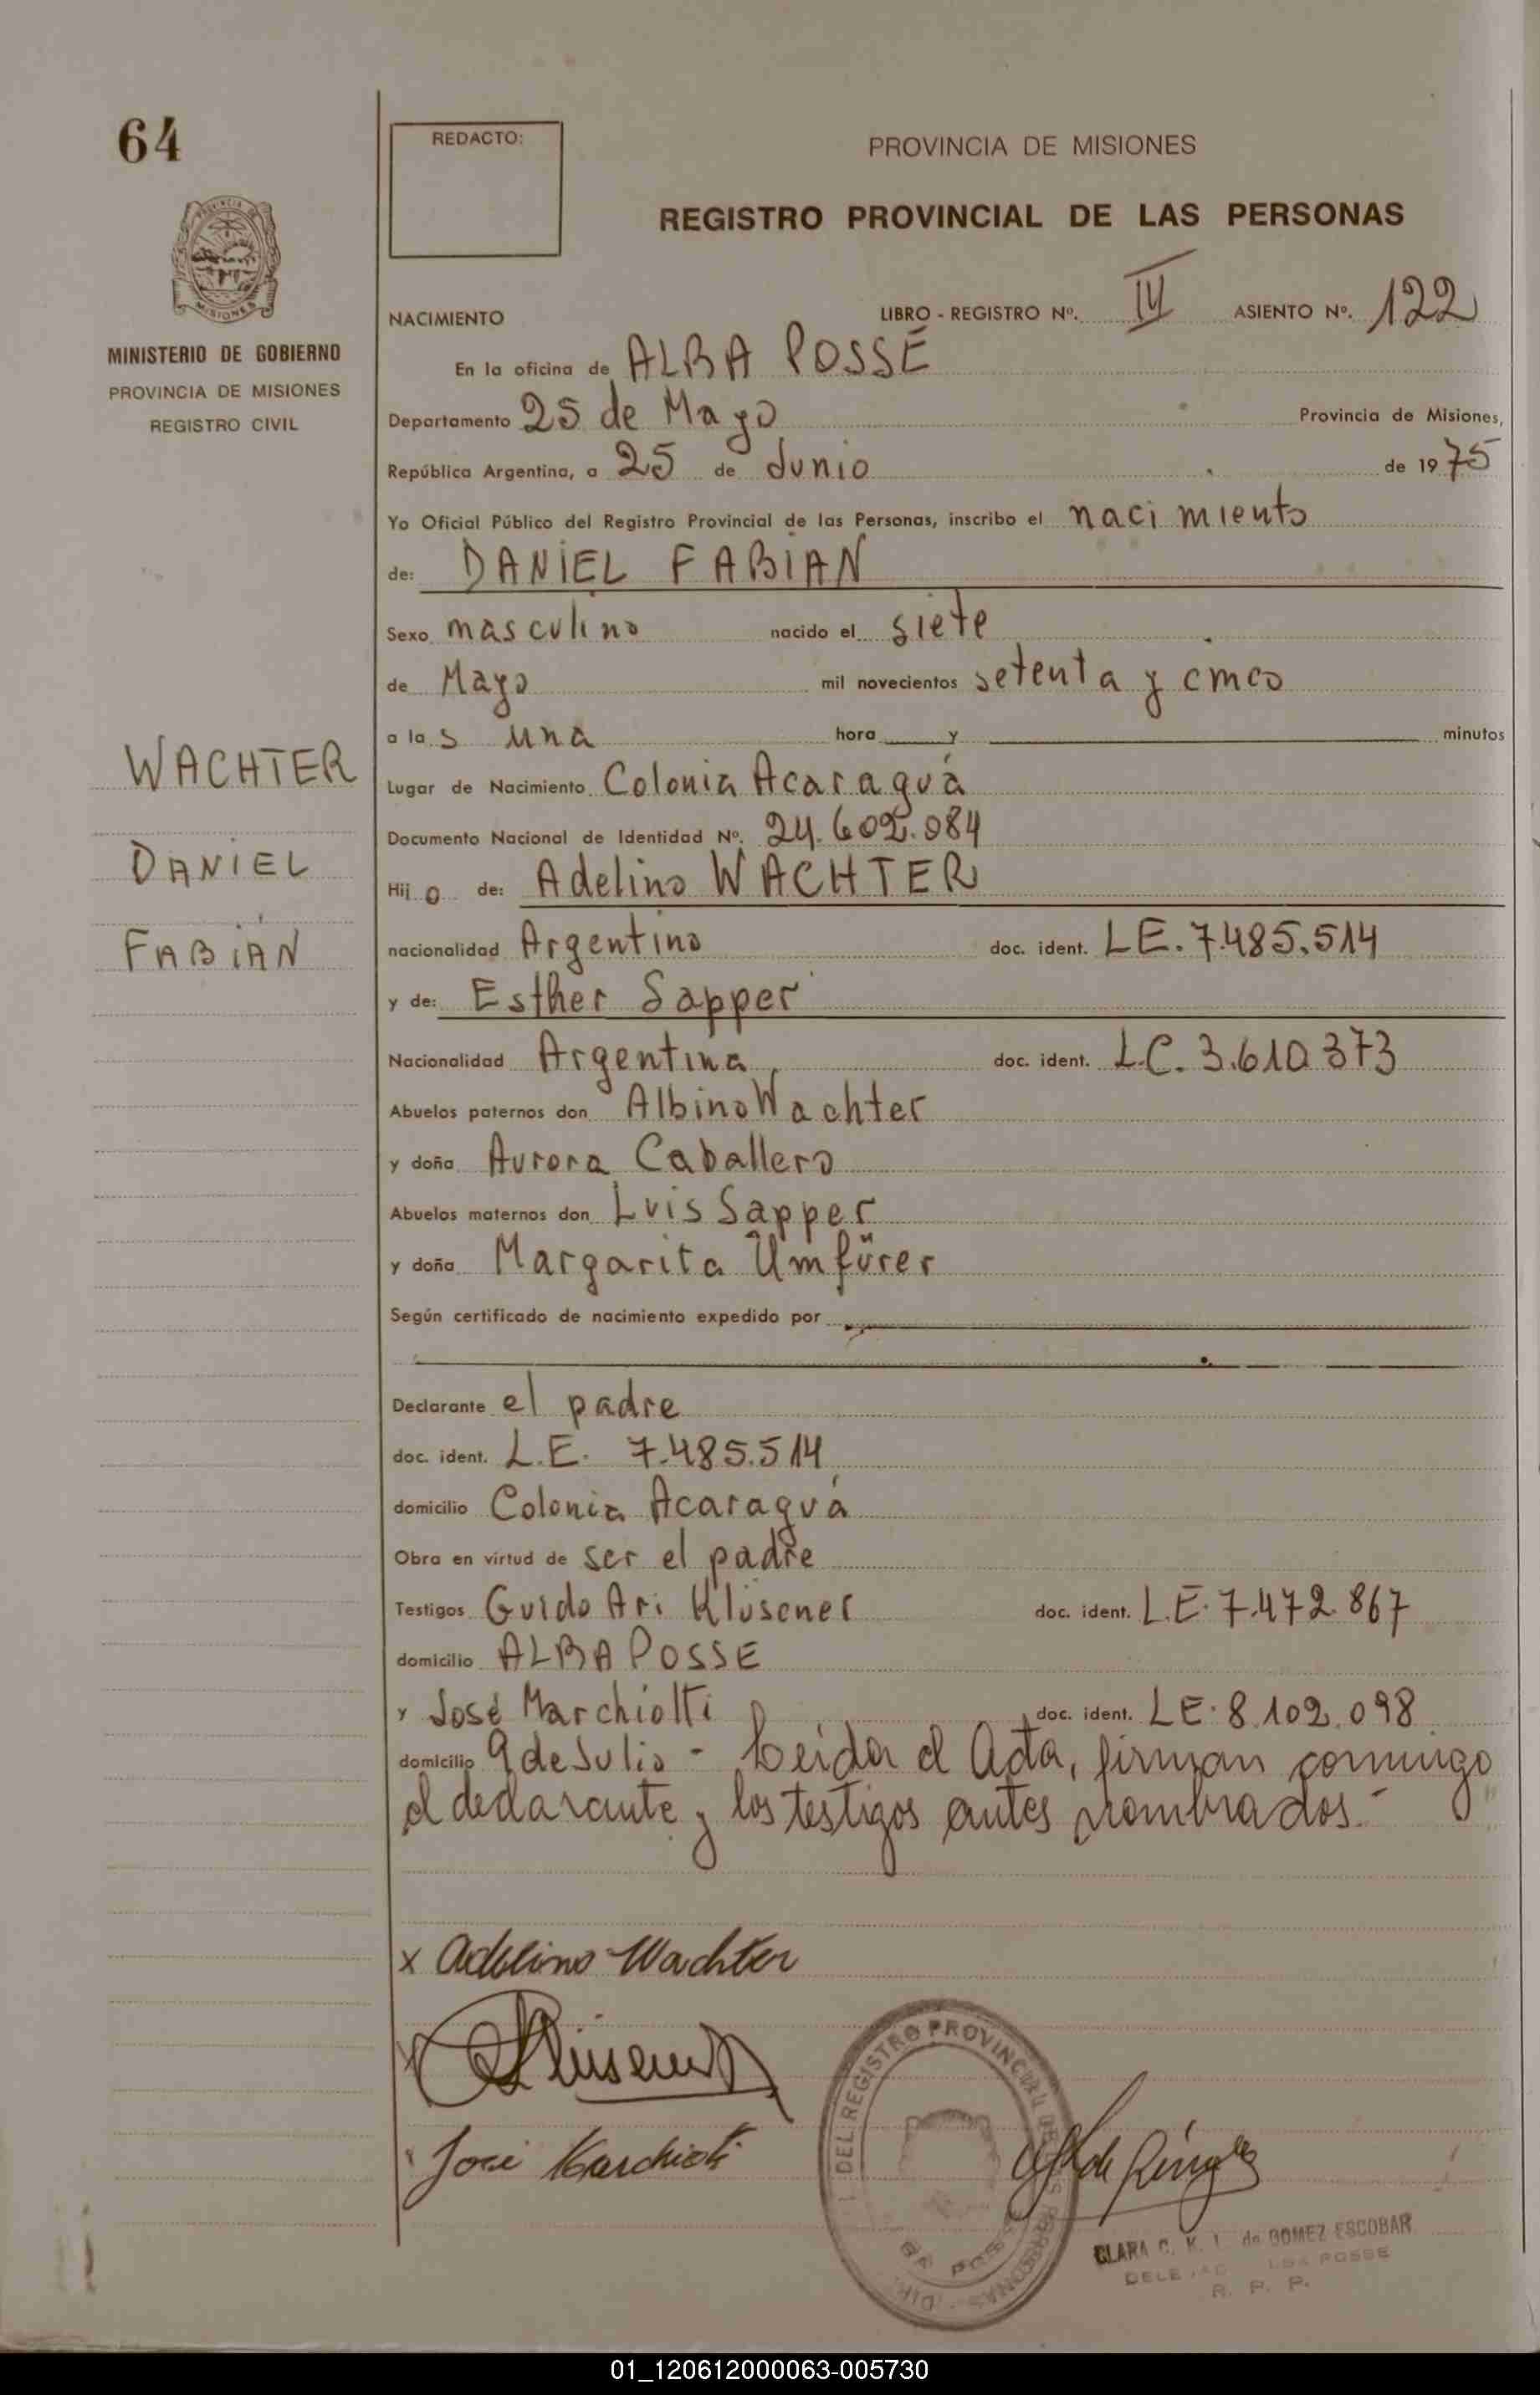 64
REDACTO:
PROVINCIA DE MISIONES
REGISTRO PROVINCIAL DE LAS PERSONAS
MINISTERIO DE GOBIERNO
PROVINCIA DE MISIONES
REGISTRO CIVIL
NACIMIENTO LIBRO - REGISTRO Nº. IV ASIENTO Nº. 122
En la oficina de ALBA POSSE
Departamento 25 de Mayo Provincia de Misiones,
República Argentina, a 25 de Junio de 1975
Yo Oficial Público del Registro Provincial de las Personas, inscribo el nacimiento
de: DANIEL FABIAN
Sexo masculino nacido el siete
de Mayo mil novecientos setenta y cinco
a las una hora y minutos
WACHTER
DANIEL
FABIAN
Lugar de Nacimiento Colonia Acaraguá
Documento Nacional de Identidad Nº. 24.602.084
Hijo de: Adelino WACHTER
nacionalidad Argentino doc. ident. LE. 7.485.514
y de: Esther Sapper
Nacionalidad Argentina doc. ident. L.C. 3.610.373
Abuelos paternos don Albino Wachter
y doña Aurora Caballero
Abuelos maternos don Luis Sapper
y doña Margarita Umfürer
Según certificado de nacimiento expedido por
Declarante el padre
doc. ident. L.E. 7.485.514
domicilio Colonia Acaraguá
Obra en virtud de ser el padre
Testigos Guido Ari Klüsener doc. ident. L.E. 7.472.867
domicilio ALBA POSSE
y José Marchiotti doc. ident. LE. 8.102.098
domicilio 9 de Julio - Leída el Acta, firman conmigo
el declarante y los testigos antes nombrados.-
x Adelino Wachter
Klüsener
José Marchiotti
DEL REGISTRO PROVINCIAL DE LAS PERSONAS
CLARA C. K. de GOMEZ ESCOBAR
POSSE
R. P. P.
01_120612000063-005730